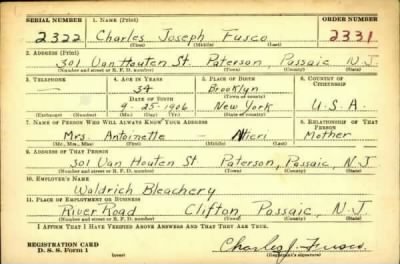 SERIAL NUMBER 1. NAME (Print) ORDER NUMBER
2322 Charles Joseph Fusco 2331
(First) (Middle) (Last)
2. ADDRESS (Print)
301 Van Houten St. Paterson, Passaic N.J.
(Number and street or R. F. D. number) (Town) (County) (State)
3. TELEPHONE 4. AGE IN YEARS 5. PLACE OF BIRTH 6. COUNTRY OF CITIZENSHIP
— 34 Brooklyn
DATE OF BIRTH (Town or county)
9-25-1906 New York U.S.A.
(Mo.) (Day) (Yr.) (State or country)
7. NAME OF PERSON WHO WILL ALWAYS KNOW YOUR ADDRESS 8. RELATIONSHIP OF THAT PERSON
Mrs. Antoinette — Mother
(Mr., Mrs., Miss) (First) (Middle) (Last)
9. ADDRESS OF THAT PERSON
301 Van Houten St Paterson, Passaic, N.J
(Number and street or R. F. D. number) (Town) (County) (State)
10. EMPLOYER'S NAME
Waldrich Bleachery
11. PLACE OF EMPLOYMENT OR BUSINESS
River Road Clifton Passaic, N.J.
(Number and street or R. F. D. number) (Town) (County) (State)
I AFFIRM THAT I HAVE VERIFIED ABOVE ANSWERS AND THAT THEY ARE TRUE.
REGISTRATION CARD
D. S. S. Form 1 (over) Charles J. Fusco
(Registrant's signature)